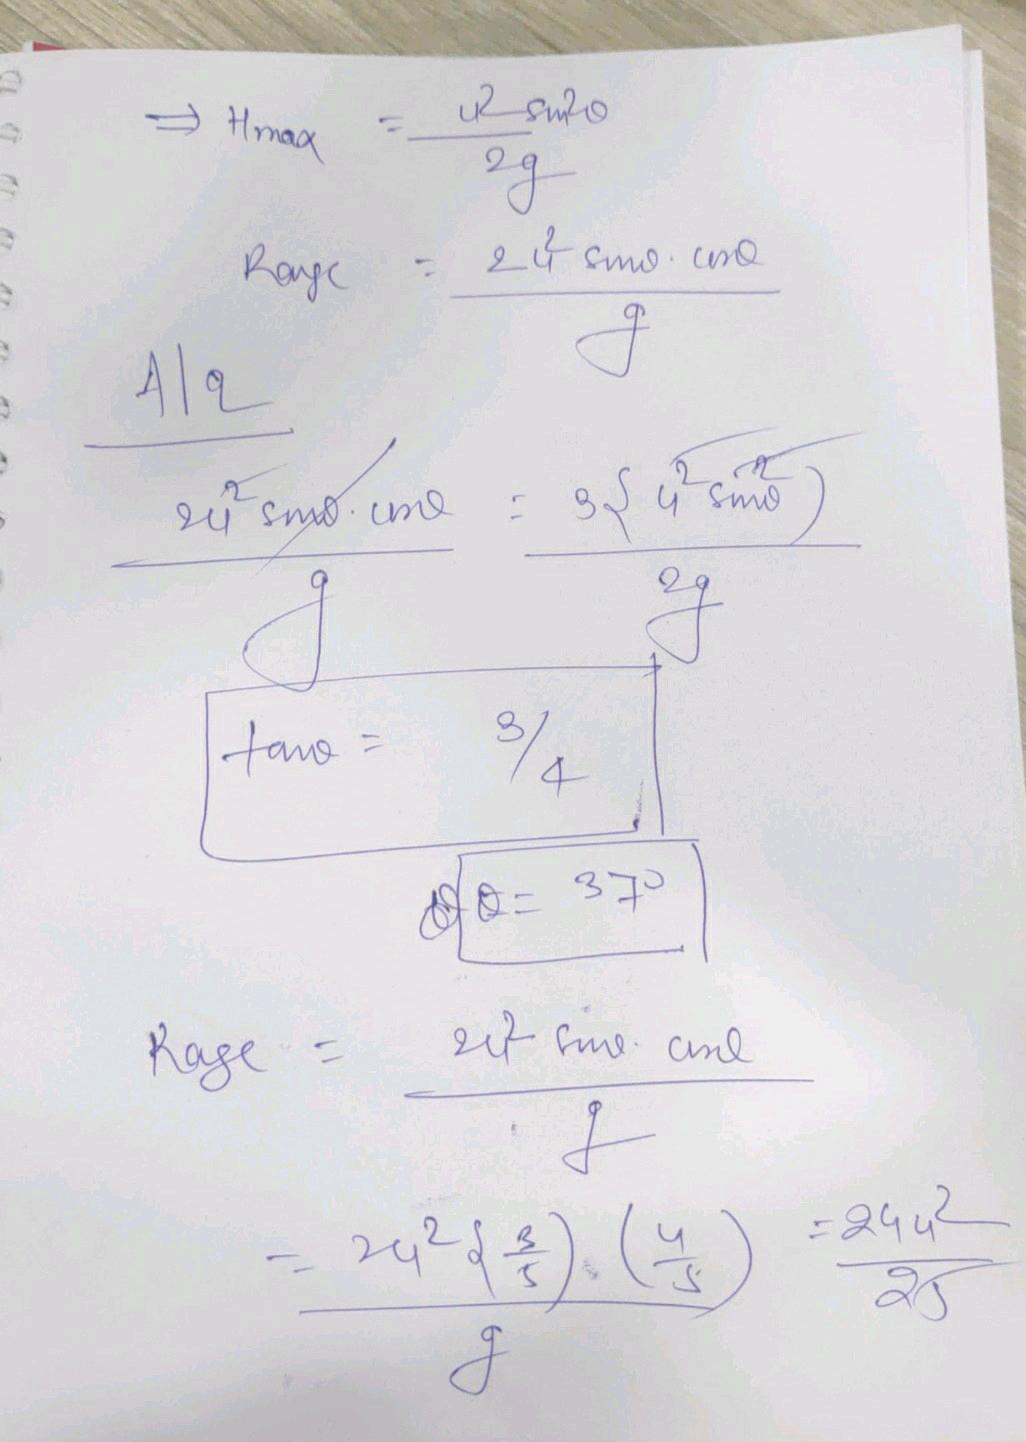 ⇒ Hmax = u² sin²θ / 2g
Range = 2u² sinθ. cosθ / g
A/q
2u² sinθ. cosθ / g = 3{u² sin²θ) / 2g
tanθ = 3/4
θ = 37°
Rage = 2u² sinθ. cosθ / g
= 2u² {3/5). (4/5) / g = 24u² / 25